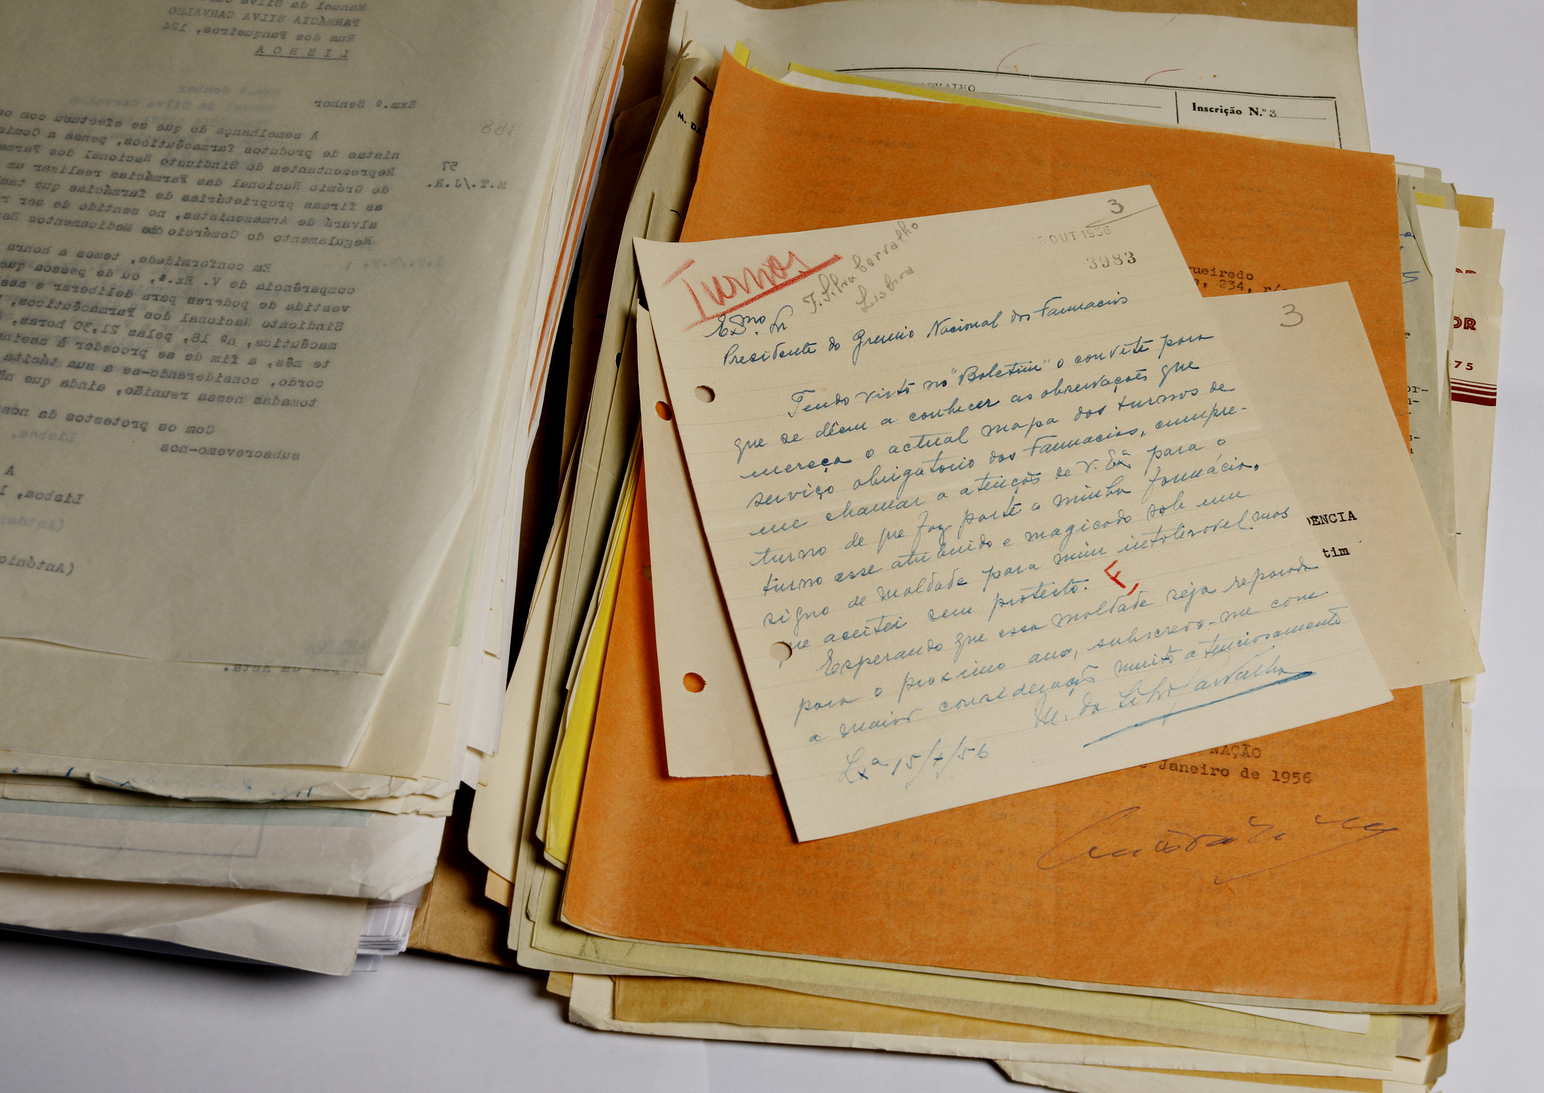 Manuel da Silva
FARMÁCIA SILVA CARVALHO
Rua dos Fanqueiros, 124
LISBOA
Exm.º Senhor
188
57
M.T./J.R.
A semelhança do que se efectuou com os
nistas de produtos farmacêuticos, pensa a Comis
Representantes do Sindicato Nacional dos Farma
do Grémio Nacional das Farmácias realizar um
as firmas proprietárias de farmácias que tam
alvará de Armazenistas, no sentido de ser r
Regulamento do Comércio de Medicamentos Esp
Em conformidade, temos a honra
comparência de V. Ex.ª, ou de pessoa que
vestida de poderes para deliberar e ass
Sindicato Nacional dos Farmacêuticos,
macêutica, nº 18, pelas 21,30 horas,
te mês, a fim de se proceder à assin
cordo, considerando-se a sua tácita
tomadas nessa reunião, ainda que nã
Com os protestos da noss
subscrevemo-nos
A
Lisboa, 1
(Antóni
(António
RVALHO
Inscrição N.º 3
M. DA
3
OUT 1956
3983
Turnos
F. Silva Carvalho
Lisboa
Exmo. Sr
Presidente do Gremio Nacional das Farmacias
Tendo visto no "Boletim" o convite para
que se dêem a conhecer as observações que
mereça o actual mapa dos turnos de
serviço obrigatorio das Farmacias, cumpre-
me chamar a atenção de V. Exª para o
turno de que faz parte a minha farmácia,
turno esse atribuido e magicado sob um
signo de maldade para mim intoleravel mas
que aceitei sem protesto.
F,
Esperando que essa maldade seja reparada
para o proximo ano, subscrevo-me com
a maior consideração muito atenciosamente
M. da Silva Carvalho
Lxª 15/7/56
ueiredo
, 234, r/
3
DÊNCIA
tim
OR
75
NAÇÃO
Janeiro de 1956